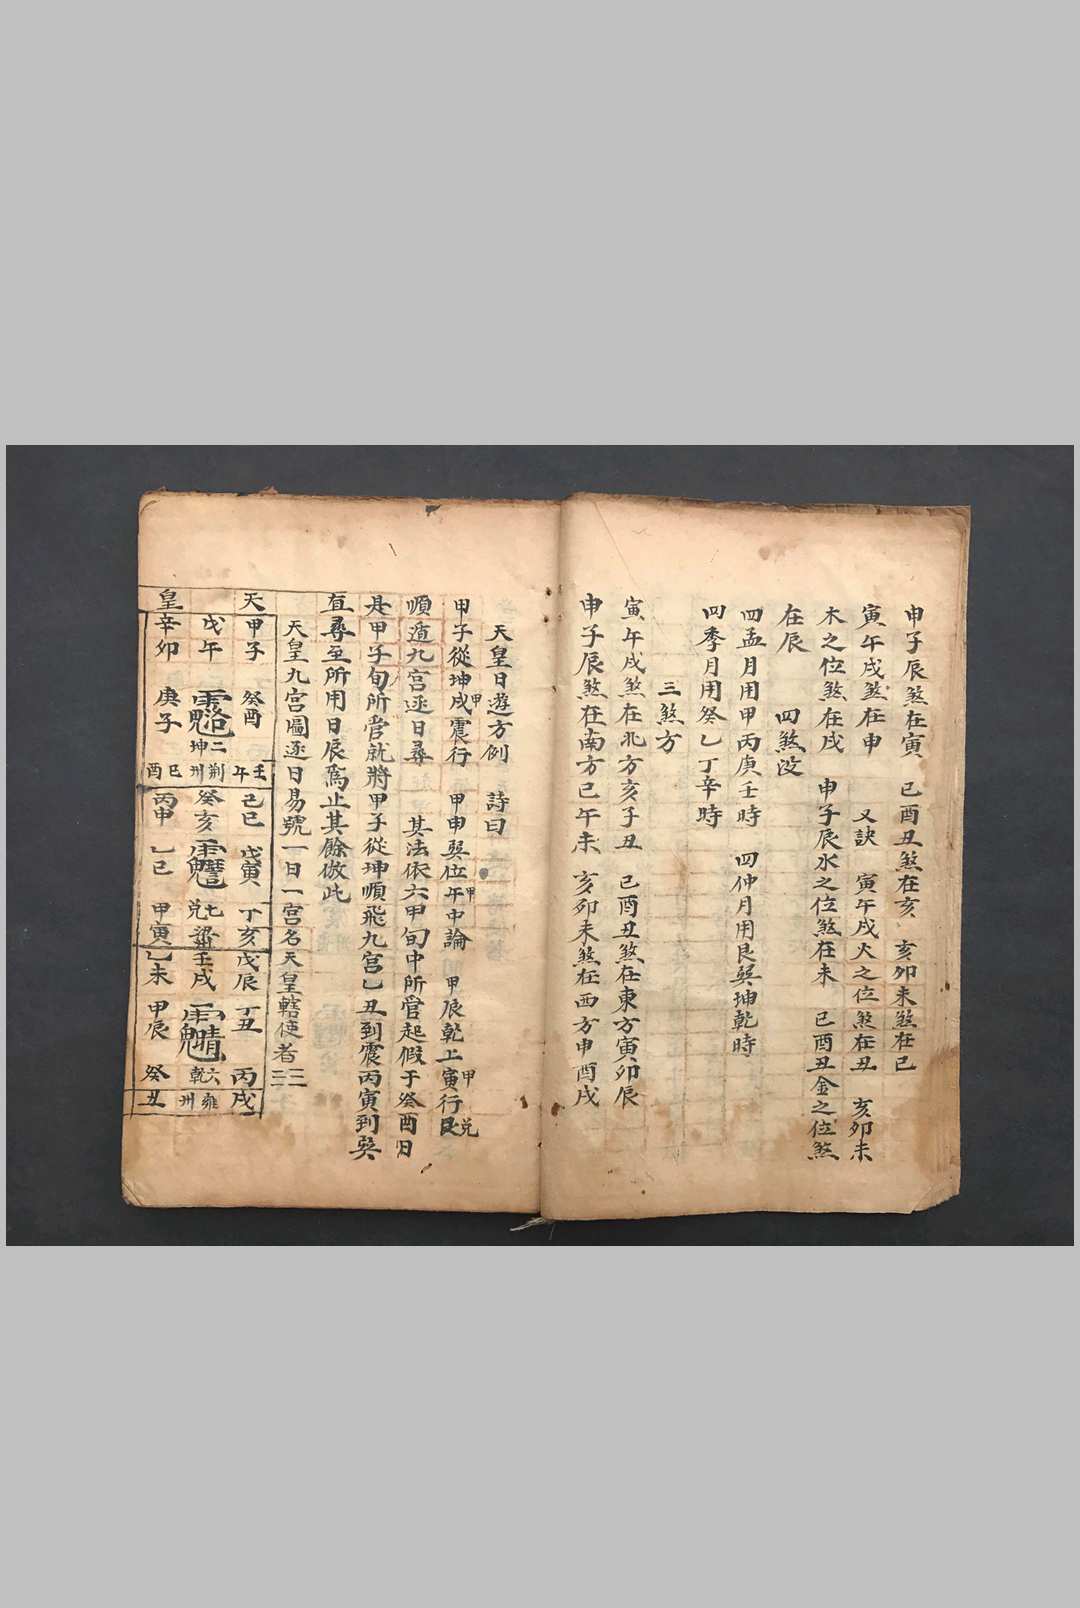 申子辰煞在寅　巳酉丑煞在亥　亥卯未煞在巳
寅午戌煞在申　又訣　寅午戌火之位煞在丑　亥卯未
木之位煞在戌　申子辰水之位煞在未　巳酉丑金之位煞
在辰　四煞没
四孟月用甲丙庚壬時　四仲月用艮巽坤乾時
四季月用癸乙丁辛時
三煞方
寅午戌煞在北方亥子丑　巳酉丑煞在東方寅卯辰
申子辰煞在南方巳午未　亥卯未煞在西方申酉戌
天皇日遊方例　詩曰
甲子從坤甲戌震行　甲申巽位甲午中論　甲辰乾上甲寅行兑
順遁九宫逐日尋　其法依六甲旬中所管起假于癸酉日
是甲子旬所管就將甲子從坤順飛九宫乙丑到震丙寅到巽
直尋至所用日辰焉止其餘倣此
天皇九宫圖逐日易號一日一宫名天皇轄使者
天　甲子　癸酉　壬午
戊午　二坤　荆州
皇　辛卯　庚子　己酉
己巳　戊寅　丁亥
癸亥　七兑　梁州
丙申　乙巳　甲寅
戊辰　丁丑　丙戌
壬戌　六乾　雍州
乙未　甲辰　癸丑